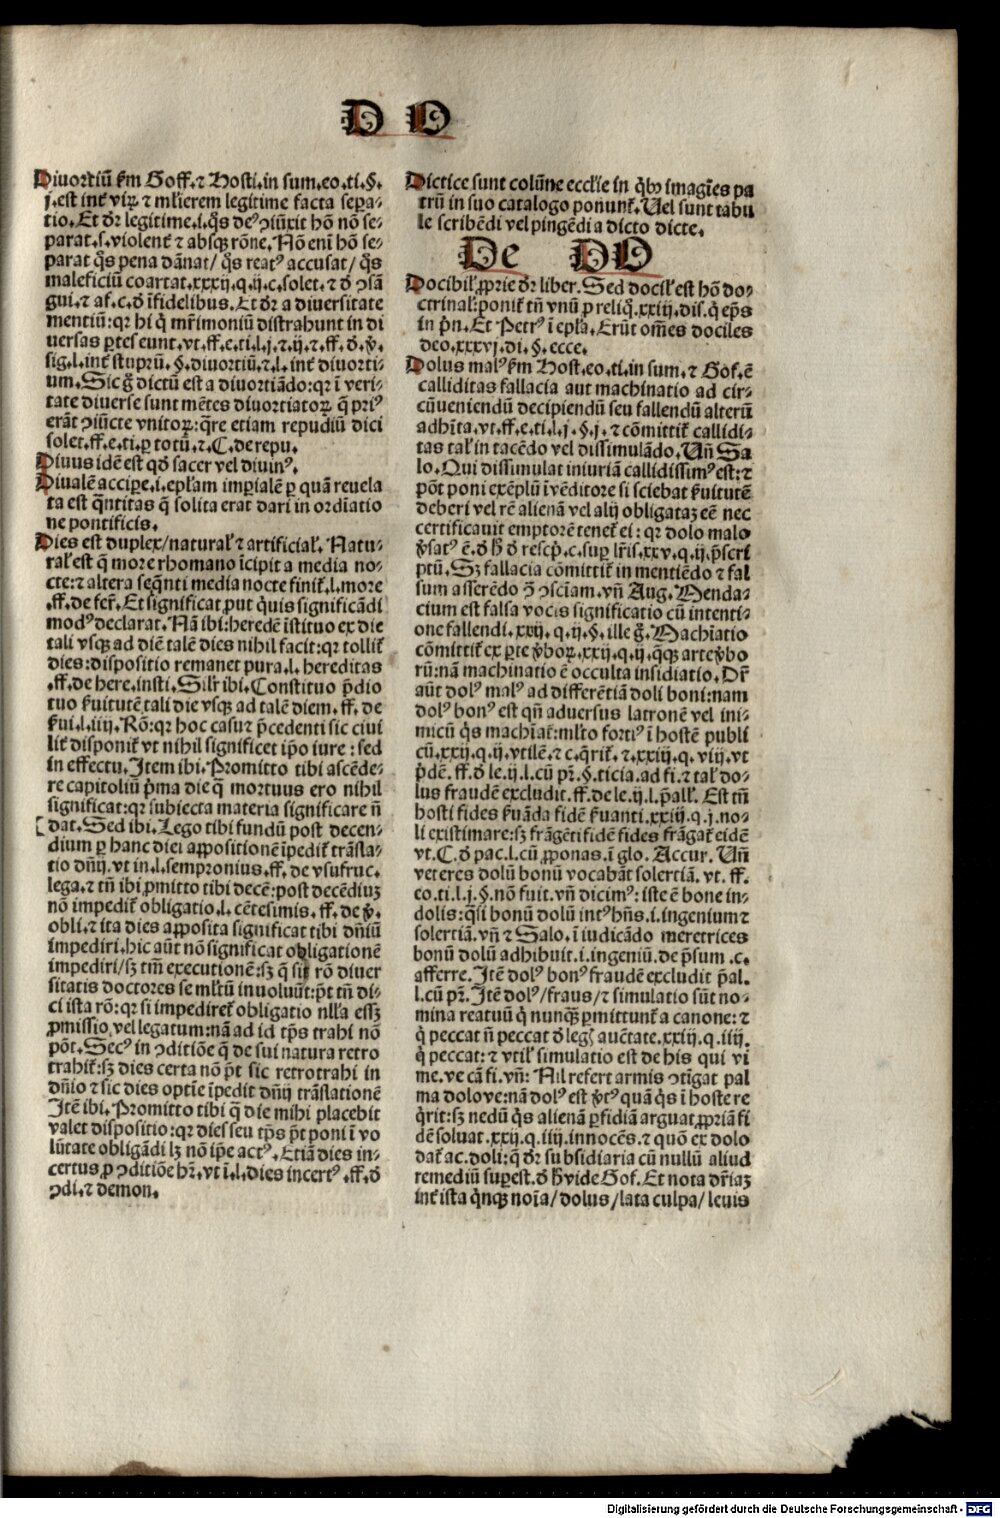 D D
Diuortiū ẜm Goff.⁊ Hosti.in sum.eo.ti.§.
j.est int̄ viꝝ ⁊ mľierem legitime facta sepa-
tio.Et dr̄ legitime.i.q̄s deꝰ ꝯiūxit hō nō se-
parat.s.violent̄ ⁊ absqꝫ rōne.Nō eni hō se-
parat q̄s pena dānat/ q̄s reatꝰ accusat/ q̄s
maleficiū coartat.xxxij.q.ij.c.solet.⁊ đ ꝯsā
gui.⁊ af.c.đ īfidelibus.Et dr̄ a diuersitate
mentiū:qr hi q̇ mr̄imoniū distrahunt in di
uersas ꝑtes eunt.vt.ff.e.ti.l.j.⁊.ij.⁊.ff.đ.v̄.
sig.l.int̄ stuprū.§.diuortiū.⁊.l.int̄ diuorti-
um.Sic g̊ dictū est a diuortiādo:qr ī veri-
tate diuerse sunt mētes diuortiatoꝝ q̄ priꝰ
erāt ꝯiūcte vnitoꝝ:q̄re etiam repudiū dici
solet.ff.e.ti.ꝑ totū.⁊.C.de repu.
Diuus idē est qđ sacer vel diuinꝰ.
Diualē accipe.i.epľam imꝑialē ꝑ quā reuela
ta est q̄ntitas q̄ solita erat dari in ordīatio
ne pontificis.
Dies est duplex/naturaľ ⁊ artificiaľ. Natu-
raľ est q̄ more rhomano īcipit a media no-
cte:⁊ altera seq̄nti media nocte finit̄.l.more
.ff.de fer̄.Et significat put q̇uis significādi
modꝰ declarat.Nā ibi:heredē īstituo ex die
tali vsqꝫ ad diē talē dies nihil facit:qr tollit̄
dies:dispositio remanet pura.l. hereditas
.ff.de here.insti.Siľr ibi.Constituo p̄dio
tuo ẜuitutē tali die vsqꝫ ad talē diem.ff. de
ẜui.l.iiij.Rō:qr hoc casur p̄cedenti sic ciui
lit̄ disponit̄ vt nihil significet ip̄o iure : sed
in effectu.Item ibi.Promitto tibi ascēde-
re capitoliū p̄ma die q̄ mortuus ero nihil
significat:qr subiecta materia significare n̄
dat.Sed ibi.Lego tibi fundū post decen-
dium ꝑ hanc diei aꝑpositionē īpedit̄ trāsla-
tio dn̄ij.vt in.l.sempronius.ff. de vsufruc.
lega.⁊ tn̄ ibi ꝓmitto tibi decē:post decēdiuꝫ
nō impedit̄ obligatio.l. cētesimis. ff.de v̄.
obli.⁊ ita dies apposita significat tibi dn̄iū
impediri.hic aūt nō significat obligationē
impediri/sꝫ tm̄ executionē:sꝫ q̄ sit rō diuer
sitatis doctores se mľtū inuoluūt:p̄t tn̄ di-
ci ista rō:qr si impediret̄ obligatio nľla essꝫ
ꝓmissio vel legatum:nā ad id tp̄s trahi nō
pōt.Secꝰ in ꝯditiōe q̄ de sui natura retro
trahit̄:sꝫ dies certa nō p̄t sic retrotrahi in
dn̄io ⁊ sic dies optīe īpedit dn̄ij trāslationē
Itē ibi.Promitto tibi q̄ die mihi placebit
valet dispositio:qr dies seu tp̄s p̄t poni ī vo
lūtate obligādi lꝫ nō ip̄e actꝰ.Etiā dies in-
certus ꝓ ꝯditiōe hr̄.vt i.l.dies incertꝰ.ff.đ
ꝯdi.⁊ demon.
Dictice sunt colūne ecclīe in q̇bꝰ imagīes pa
trū in suo catalogo ponunt̄.Uel sunt tabu
le scribēdi vel pingēdi a dicto dicte.
De DO
Docibiľ ꝓprie dr̄ liber.Sed dociľ est hō do-
ctrinaľ:ponit̄ tn̄ vnū ꝓ reliq̊.xxiij.dis.q̇ ep̄s
in p̄n.Et Petrꝰ ī epľa.Erūt oīnes dociles
deo.xxxvj.di.§.ecce.
Dolus malꝰ ẜm Host.eo.ti.in sum.⁊ Gof.ē
calliditas fallacia aut machinatio ad cir-
cūueniendū decipiendū seu fallendū alterū
adhīta.vt.ff.e.ti.l.j.§.j.⁊ cōmittit̄ callidi-
tas taľ in tacēdo vel dissimulādo. Un̄ Sa
lo.Qui dissimulat iniuriā callidissimꝰ est:⁊
pōt poni exēplū ī vēditore si sciebat ẜuitutē
deberi vel rē alienā vel alij obligataꝫ eē nec
certificauit emptorē tenet̄ ei : qr dolo malo
v̄satꝰ ē.đ h̄ đ rescp̄.c.suꝑ lr̄is.xxv.q.ij.p̄scri
ptū.Sꝫ fallacia cōmittit̄ in mentiēdo ⁊ fal
sum asserēdo ꝯ̄ ꝯsciam.vn̄ Aug.Menda-
cium est falsa vocis significatio cū intenti-
one fallendi.xxij.q.ij.§.ille g̊.Machīatio
cōmittit̄ ex ꝑte v̄boꝝ.xxij.q.ij.q̄qꝫ arte v̄bo
rū:nā machinatio ē occulta insidiatio. Dr̄
aūt dolꝰ malꝰ ad differētiā doli boni:nam
dolꝰ bonꝰ est qn̄ aduersus latronē vel ini-
micū q̇s machīat̄:mľto fortiꝰ ī hostē publi
cū.xxij.q.ij.vtilē.⁊ c.q̄rit̄.⁊.xxiij.q.viij.vt
p̄dē.ff.đ le.ij.l.cū pr̄.§.ticia.ad fi.⁊ taľ do-
lus fraudē excludit.ff.de le.ij.l.p̄alľ. Est tn̄
hosti fides ẜuāda fidē ẜuanti.xxiij.q.j.no-
li existimare:sꝫ frāgēti fidē fides frāgat̄ eidē
vt.C.đ pac.l.cū ꝓponas.ī glo.Accur. Un̄
veteres dolū bonū vocabāt solertiā.vt.ff.
eo.ti.l.j.§.nō fuit.vn̄ dicimꝰ: iste ē bone in-
dolis:q̄si bonū dolū intꝰ hn̄s.i.ingenium ⁊
solertiā.vn̄ ⁊ Salo.ī iudicādo meretrices
bonū dolū adhibuit.i.ingeniū.de p̄sum .c.
afferre.Itē dolꝰ bonꝰ fraudē excludit p̄al.
l.cū pr̄.Itē dolꝰ/fraus/⁊ simulatio sūt no-
mina reatuū q̇ nunqꝫ ꝑmittunt̄ a canone: ⁊
q̇ peccat n̄ peccat đ legꝭ auctate.xxiij.q.iiij.
q̇ peccat: ⁊ vtiľ simulatio est de his qui vi
me.ve cā fi.vn̄: Nil refert armis ꝯtīgat pal
ma dolove:nā dolꝰ est v̄tꝰ quā q̇s ī hoste re
q̇rit:sꝫ nedū q̇s alienā ꝑfidiā arguat ꝓpriā fi
dē soluat.xxij.q.iiij.innocēs.⁊ quō ex dolo
dat̄ ac.doli:q̄ dr̄ subsidiaria cū nullū aliud
remediū suꝑest.đ h̄ vide Gof.Et nota dr̄iaꝫ
int̄ ista q̇nqꝫ noīa/dolus/lata culpa/leuis
Digitalisierung gefördert durch die Deutsche Forschungsgemeinschaft - DFG